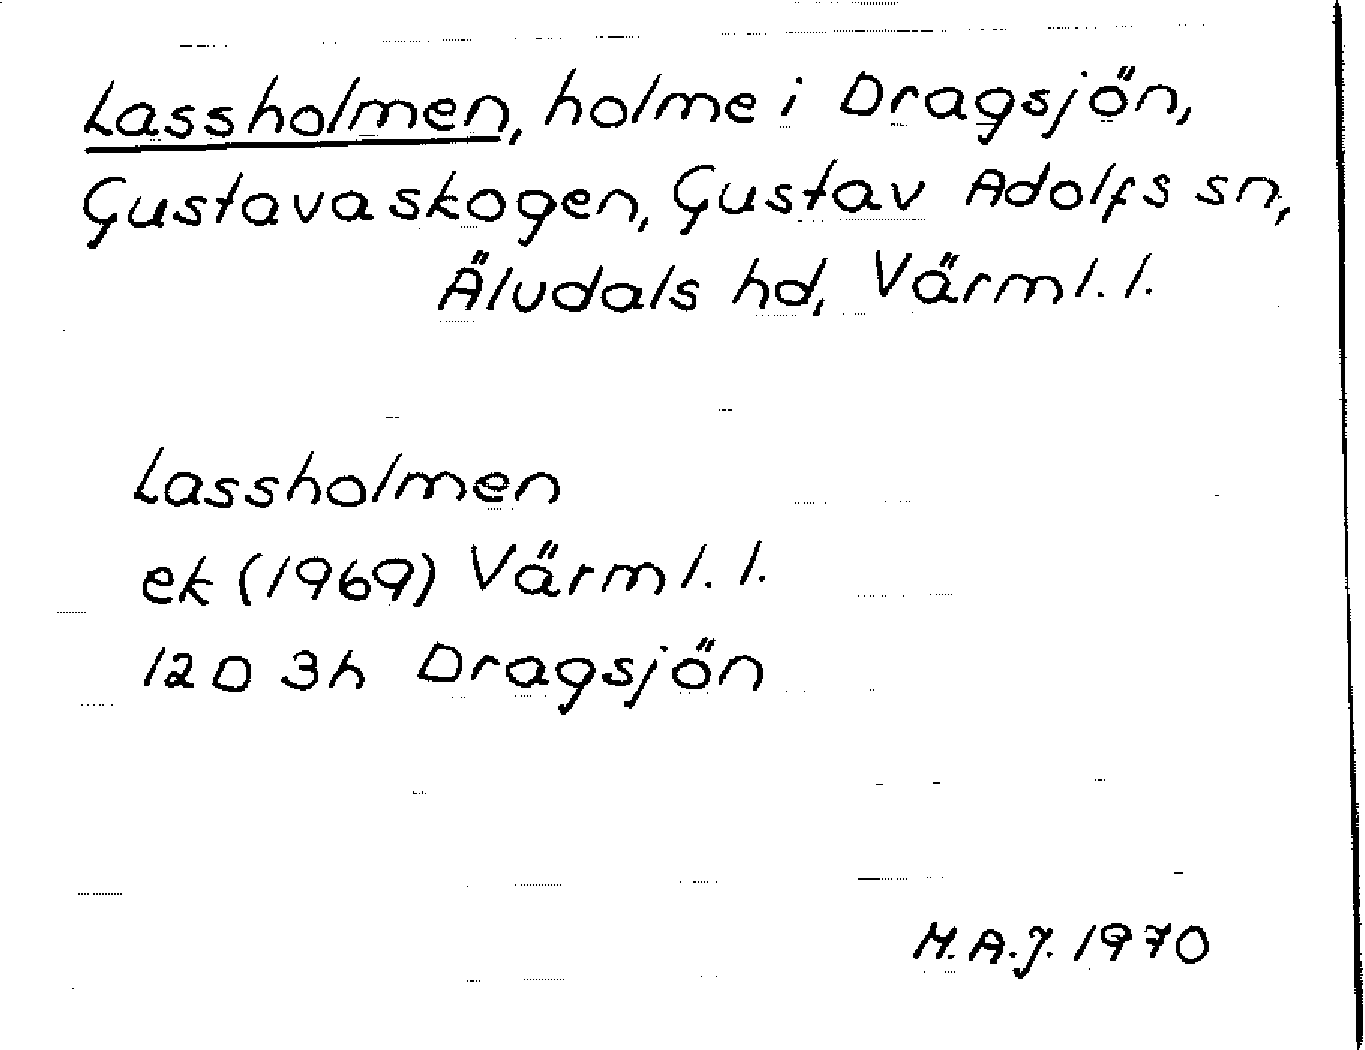 Lassholmen, holme i Dragsjön,
Gustavaskogen, Gustav Adolfs sn,
Älvdals hd, Värml. l.
Lassholmen
ek (1969) Värml. l.
12D 3h Dragsjön
M.A.J. 1970